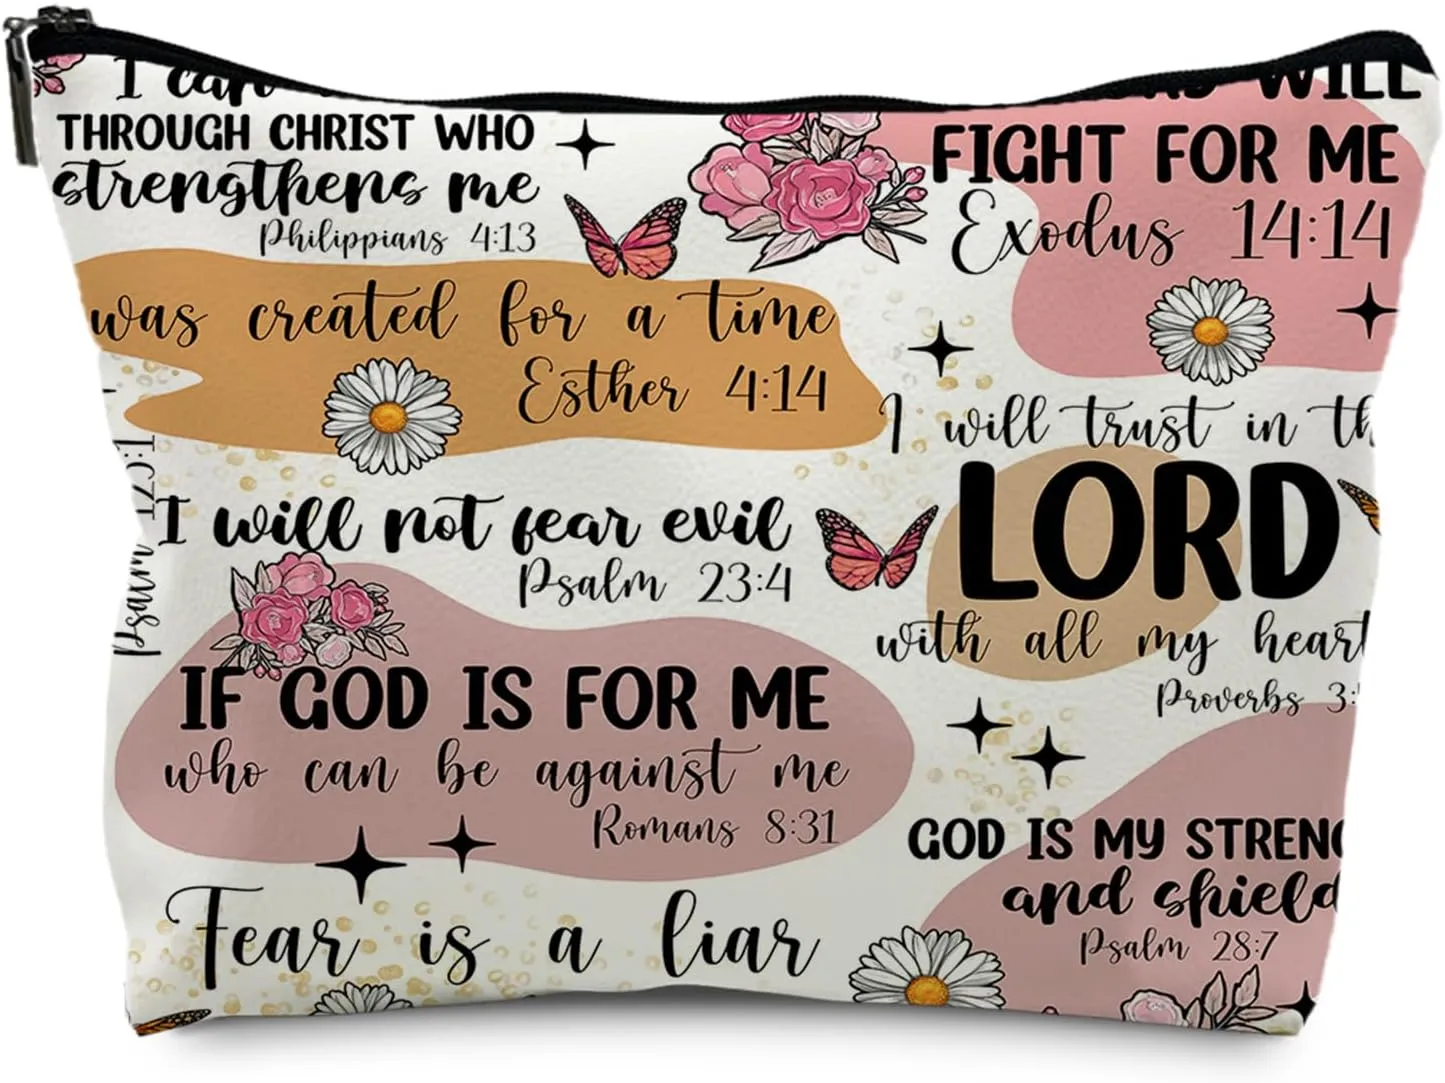 I can
THROUGH CHRIST WHO
strengthens me
Philippians 4:13
WILL
FIGHT FOR ME
Exodus 14:14
was created for a time
Esther 4:14
I will trust in th
LORD
with all my heart
Proverbs 3:
Psalm 125:1
I will not fear evil
Psalm 23:4
IF GOD IS FOR ME
who can be against me
Romans 8:31
GOD IS MY STRENG
and shield
Psalm 28:7
Fear is a liar